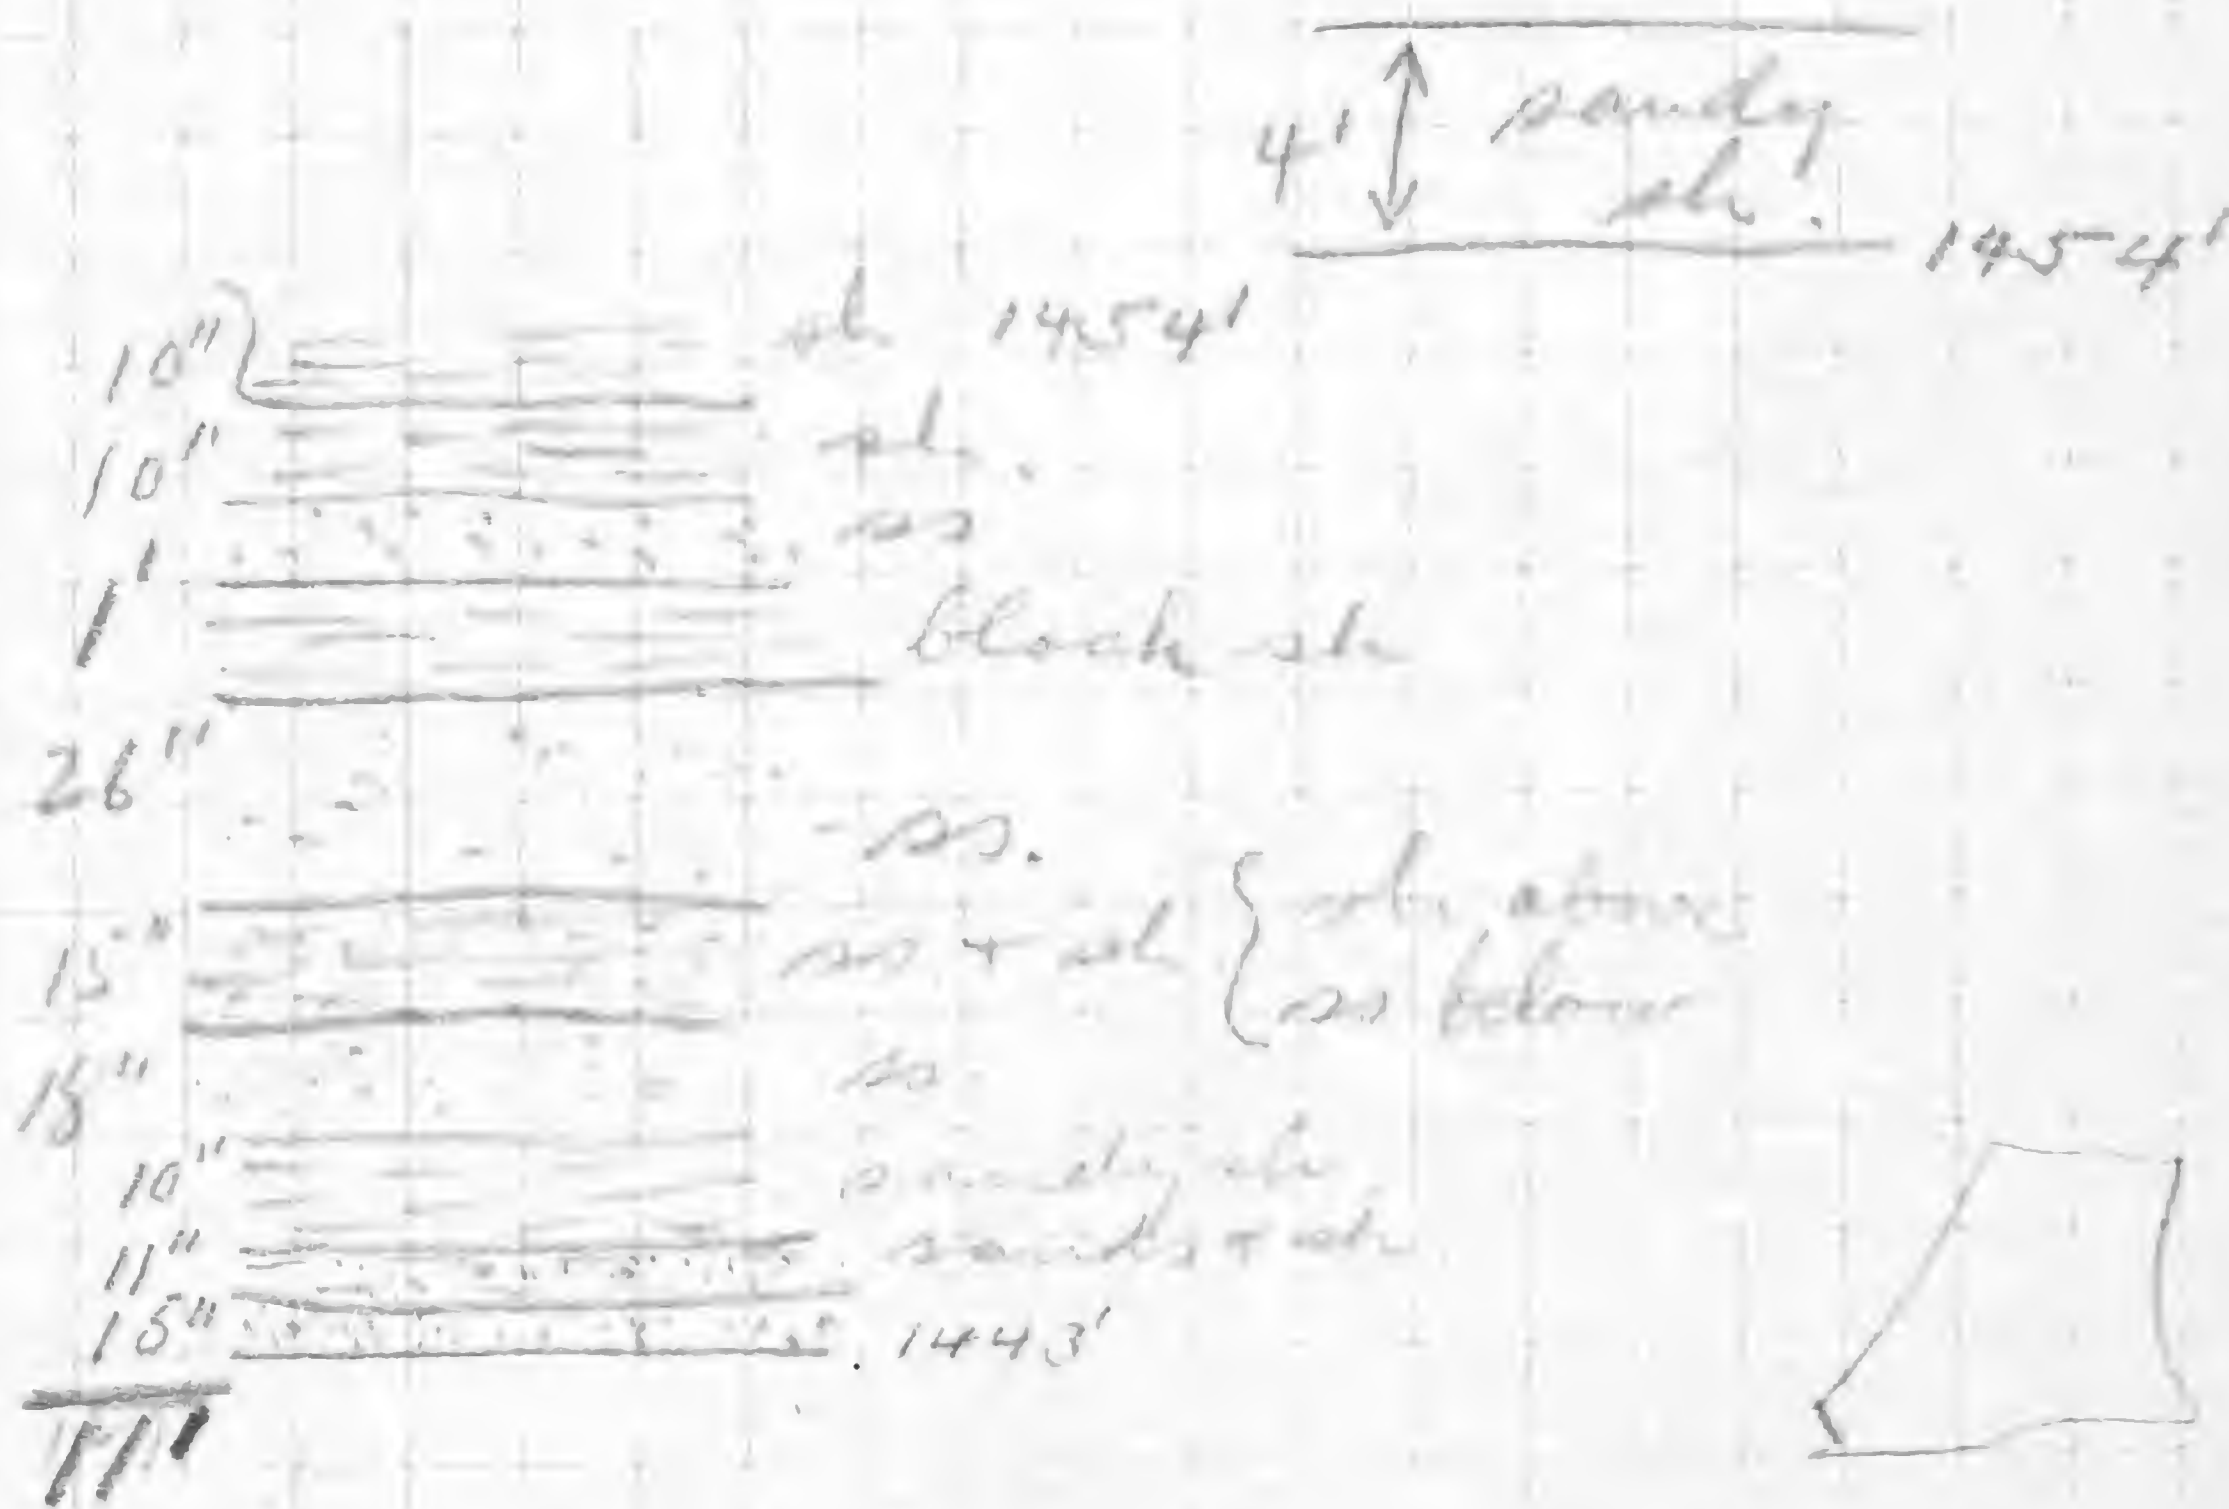 4' sandy
sh.
1454'
10" sh 1454'
10" sh.
ss
1' black sh
26"
ss.
15" ss + sh { sh above
ss below
15" ss
10" sandy sh
11" sands + sh
15" 1443'
11'